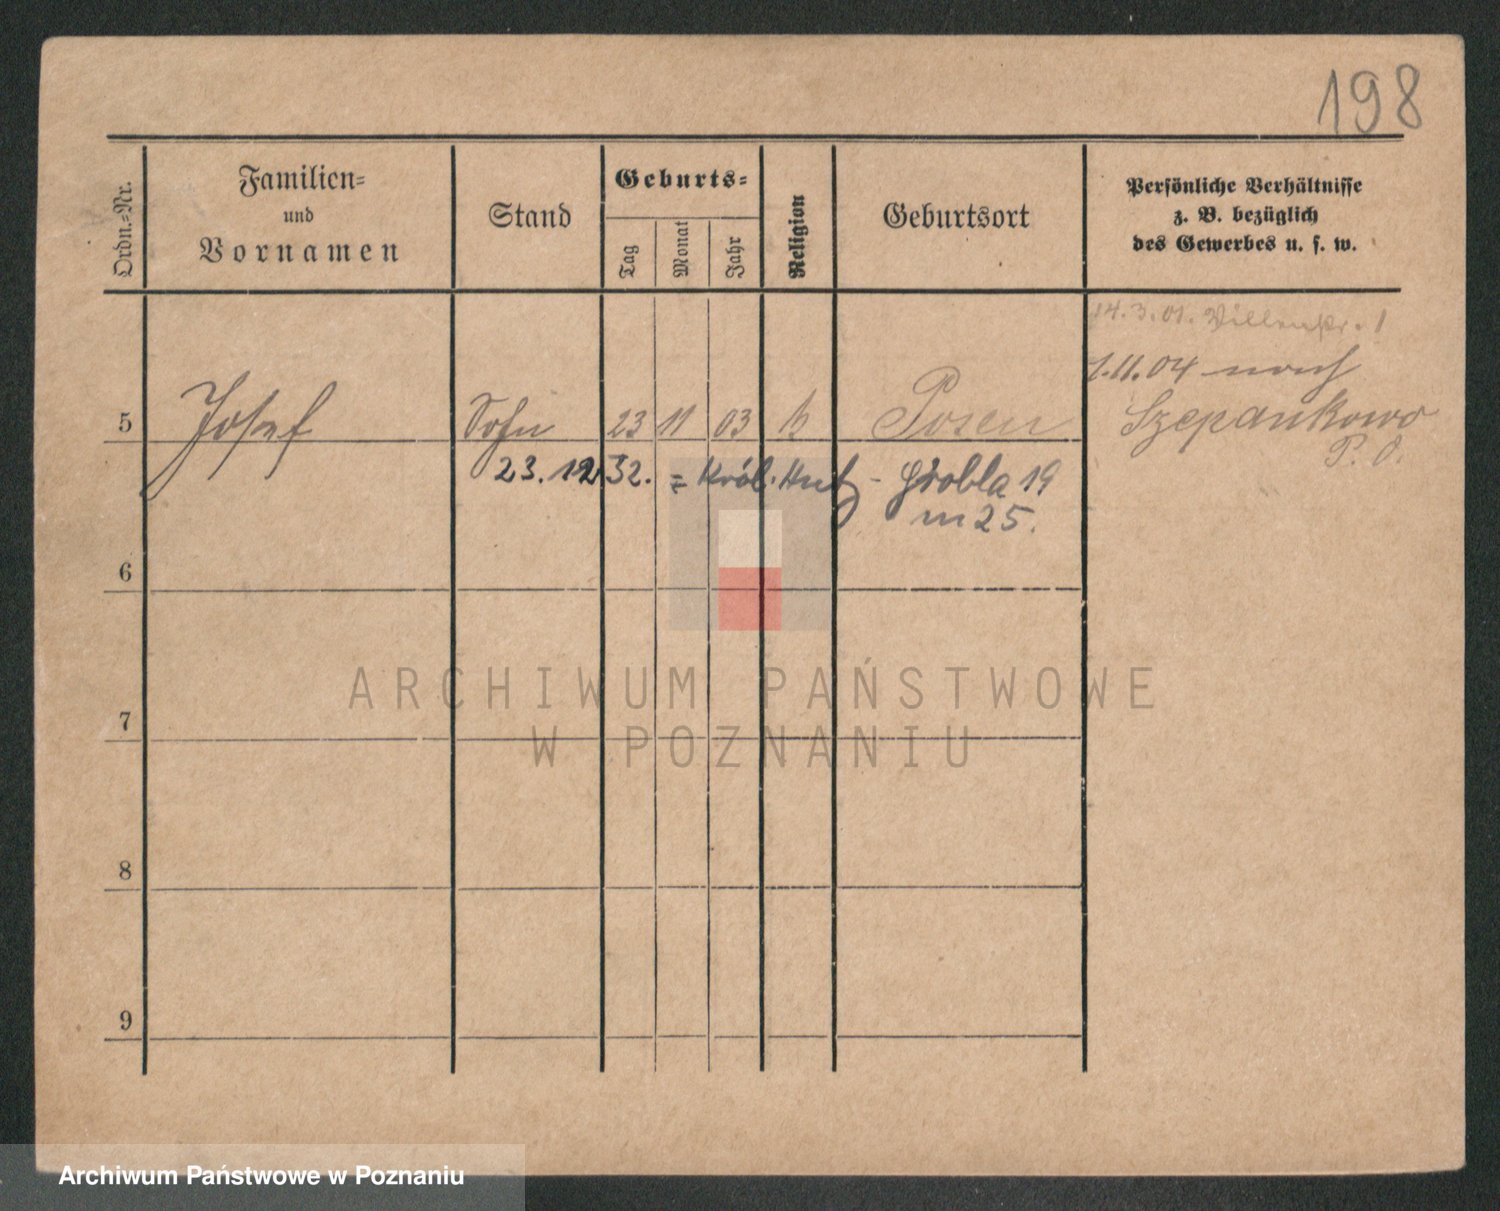 198
Ordn.-Nr.
Familien-
und
Vornamen
Stand
Geburts-
Tag
Monat
Jahr
Religion
Geburtsort
Persönliche Verhältnisse
z. B. bezüglich
des Gewerbes u. s. w.
14.3.01. Villenstr. 1
1.11.04 nach
Szepankowo
P. O.
5 Josef Sohn 23 11 03 k Posen
23.12.32. = Król. Hut - Grobla 19
m 25.
6
7
8
9
ARCHIWUM PAŃSTWOWE
W POZNANIU
Archiwum Państwowe w Poznaniu